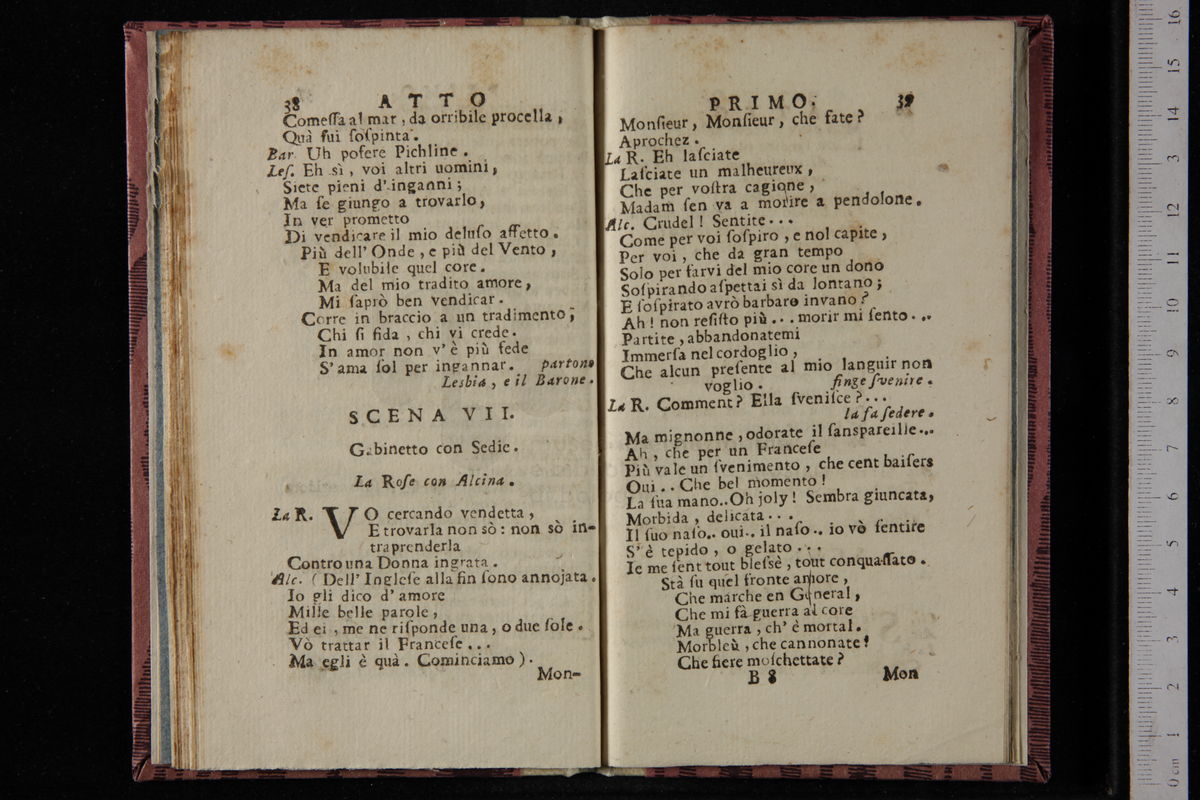 38 ATTO
Comeſſa al mar, da orribile procella,
Quà fui ſoſpinta.
Bar. Uh pofere Pichline.
Leſ. Eh sì, voi altri uomini,
Siete pieni d'inganni;
Ma ſe giungo a trovarlo,
In ver prometto
Di vendicare il mio deluſo affetto.
Più dell' Onde, e più del Vento,
E volubile quel core.
Ma del mio tradito amore,
Mi ſaprò ben vendicar.
Corre in braccio a un tradimento;
Chi ſi fida, chi vi crede.
In amor non v'è più fede
S'ama ſol per ingannar. partono
Lesbia, e il Barone.
SCENA VII.
Gabinetto con Sedie.
La Roſe con Alcina.
La R. VO cercando vendetta,
E trovarla non sò: non sò in-
traprenderla
Contro una Donna ingrata.
Alc. (Dell' Ingleſe alla fin ſono annojata.
Io gli dico d'amore
Mille belle parole,
Ed ei, me ne riſponde una, o due ſole.
Vò trattar il Franceſe...
Ma egli è quà. Cominciamo).
Mon-
PRIMO. 39
Monſieur, Monſieur, che fate?
Aprochez.
La R. Eh laſciate
Laſciate un malheureux,
Che per voſtra cagione,
Madam ſen va a morire a pendolone.
Alc. Crudel! Sentite...
Come per voi ſoſpiro, e nol capite,
Per voi, che da gran tempo
Solo per farvi del mio core un dono
Soſpirando aſpettai sì da lontano;
E ſoſpirato avrò barbaro invano?
Ah! non reſiſto più... morir mi ſento...
Partite, abbandonatemi
Immerſa nel cordoglio,
Che alcun preſente al mio languir non
voglio. finge ſvenire.
La R. Comment? Ella ſveniſce?...
la fa ſedere.
Ma mignonne, odorate il ſanspareille...
Ah, che per un Franceſe
Più vale un ſvenimento, che cent baiſers
Oui.. Che bel momento!
La ſua mano.. Oh joly! Sembra giuncata,
Morbida, delicata...
Il ſuo naſo.. oui.. il naſo.. io vò ſentire
S'è tepido, o gelato...
Ie me ſent tout bleſsè, tout conquaſſato.
Stà ſu quel fronte amore,
Che marche en General,
Che mi fà guerra al core
Ma guerra, ch'è mortal.
Morbleù, che cannonate!
Che fiere moſchettate?
B 8 Mon